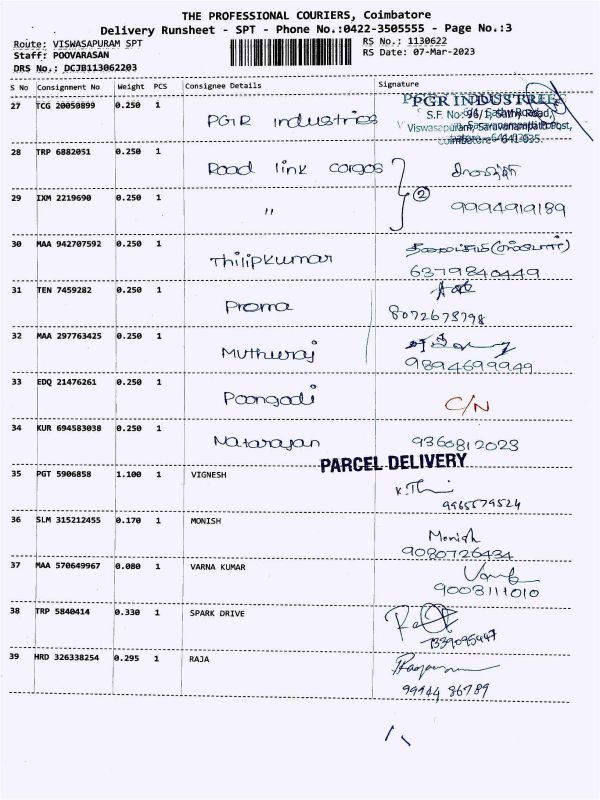 THE PROFESSIONAL COURIERS, Coimbatore
Delivery Runsheet - SPT - Phone No.:0422-3505555 - Page No.:3
Route: VISWASAPURAM SPT RS No.: 1130622
Staff: POOVARASAN RS Date: 07-Mar-2023
DRS No.: DCJB113062203
S No Consignment No Weight PCS Consignee Details Signature
27 TCG 20050899 0.250 1 PGR industries PGR INDUSTREE
S.F. No: 96/1, Sathy Road,
Viswasapuram, Saravanampatti Post,
28 TRP 6882051 0.250 1 Road link cargos
29 IXM 2219690 0.250 1 " 2 9994919189
30 MAA 942707592 0.250 1 Thilipkumar
6379840449
31 TEN 7459282 0.250 1 Prema
8072673798
32 MAA 297763425 0.250 1 Muthuraj
9894699949
33 EDQ 21476261 0.250 1 Poongodi C/N
34 KUR 694583038 0.250 1 Natarajan 9360812023
PARCEL DELIVERY
35 PGT 5906858 1.100 1 VIGNESH
9965579524
36 SLM 315212455 0.170 1 MONISH Monish
9080726434
37 MAA 570649967 0.080 1 VARNA KUMAR
9003111010
38 TRP 5840414 0.330 1 SPARK DRIVE
7339095447
39 HRD 326338254 0.295 1 RAJA
99444 86789